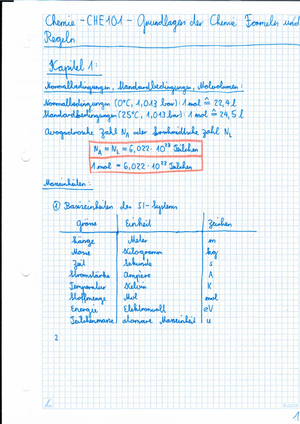 Chemie - CHE101 - Grundlagen der Chemie Formeln und
Regeln
Kapitel 1:
Normalbedingungen, Standardbedingungen, Molvolumen:
Normalbedingungen (0°C, 1,013 bar): 1 mol ≙ 22,4 l
Standardbedingungen (25°C, 1,013 bar): 1 mol ≙ 24,5 l
Avogadrosche Zahl N_A oder Loschmidtsche Zahl N_L
N_A = N_L = 6,022 · 10²³ Teilchen
1 mol = 6,022 · 10²³ Teilchen
Masseinheiten:
① Basiseinheiten des SI-Systems
Grösse Einheit Zeichen
Länge Meter m
Masse Kilogramm kg
Zeit Sekunde s
Stromstärke Ampere A
Temperatur Kelvin K
Stoffmenge Mol mol
Energie Elektronvolt eV
Teilchenmasse atomare Masseinheit u
2
1